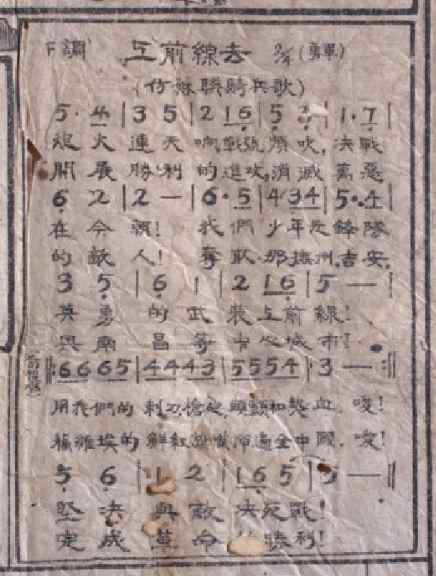 F調 上前線去 2/4 (勇軍)
(竹妹聯騎兵歌)
5· 4 | 3 5 | 2 1 6 | 5 | 1· 7 |
炮火連天响,戰號頻吹,決戰
開展勝利的進攻,消滅萬惡
6 2 | 2 — | 6· 5 | 4 3 4 | 5· 4 |
在今朝! 我們少年先鋒隊
的敵人! 奪取那撫州.吉安.
3 5 | 6 1 | 2 1 6 | 5 — |
英勇的武裝上前線!
與南昌等中心城市!
6 6 6 5 | 4 4 4 3 | 5 5 5 4 | 3 — :||
用我們的刺刀槍炮頭顱和熱血.唆!
蘇維埃的鮮紅旗幟 遍全中國.唆!
5 6 | 1 2 | 1 6 5 | 5 — ||
堅決與敵決死戰!
完成革命 勝利!